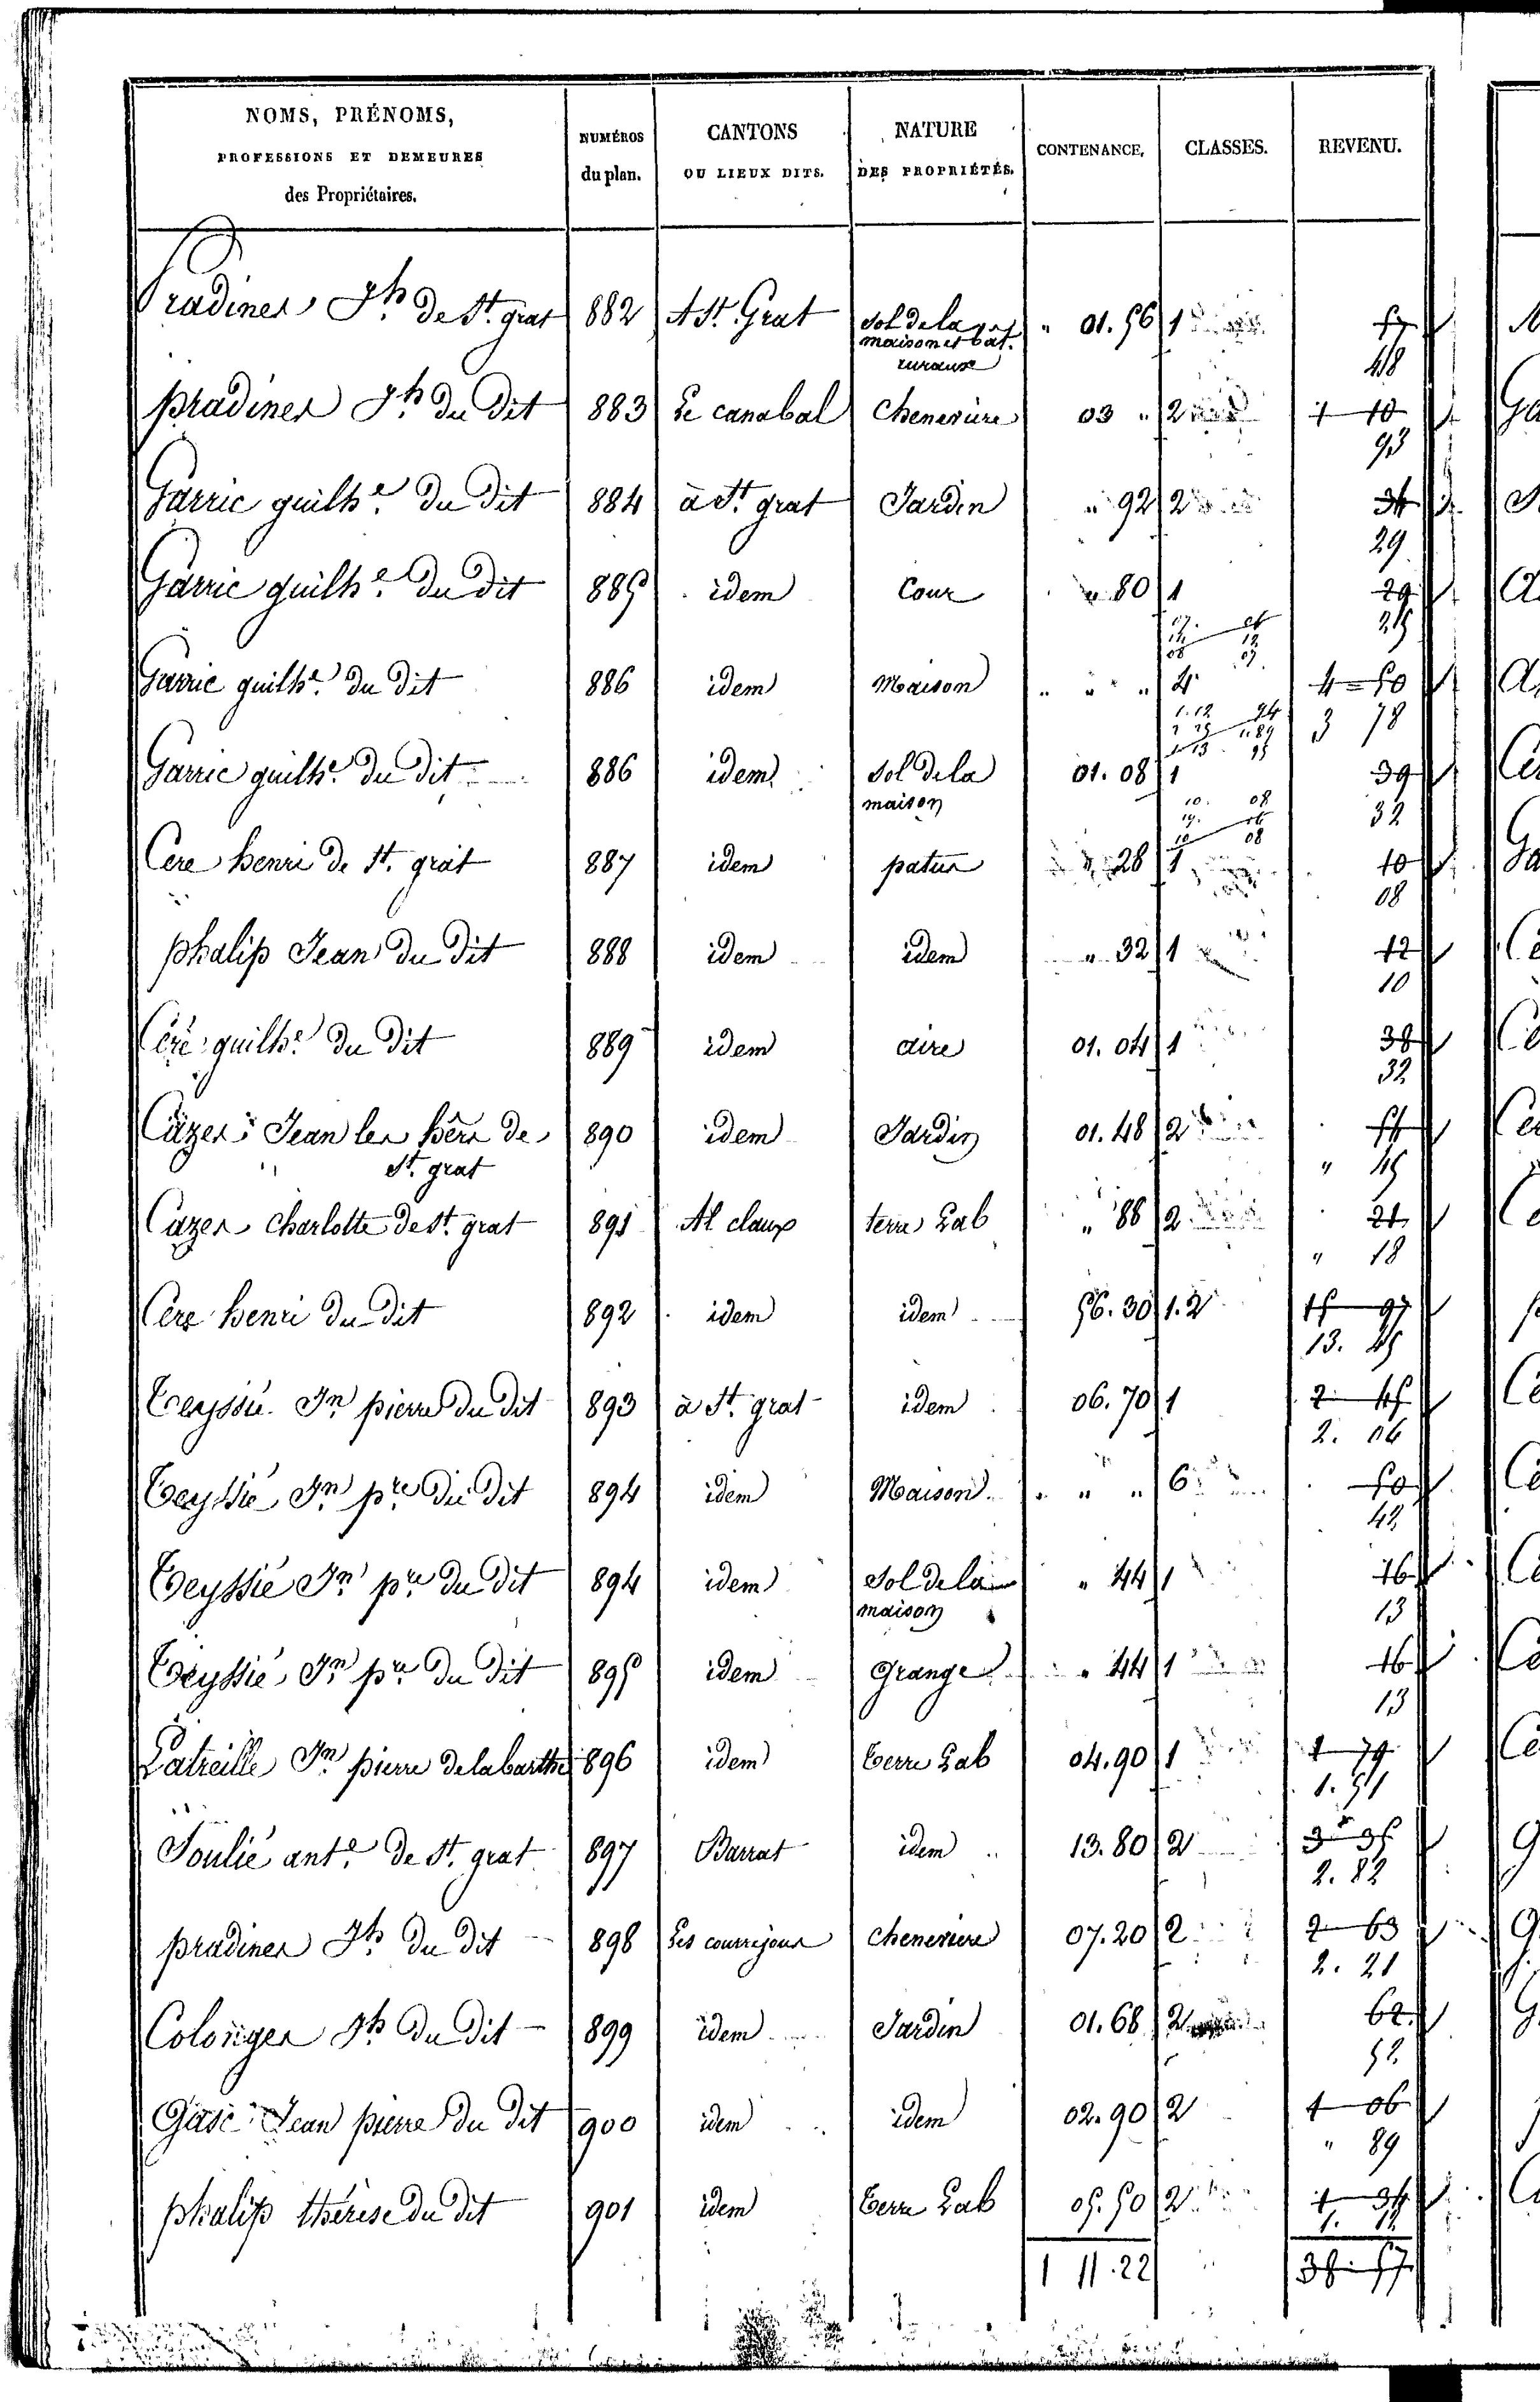 NOMS, PRÉNOMS, PROFESSIONS ET DEMEURES des Propriétaires. NUMÉROS du plan. CANTONS OU LIEUX DITS. NATURE DES PROPRIÉTÉS. CONTENANCE. CLASSES. REVENU.
Pradines Jh de St. grat 882 A St. Grat Sol de la " 01.56 1 57
maison et bat. ruraux 48
pradines Jh du dit 883 Le canabal Chenevière 03 " 2 1 10
93
Garric guilhe du dit 884 à St. grat Jardin " 92 2 34
29
Garric guilhe du dit 885 idem Cour " 80 1 29
25
Garric guilhe du dit 886 idem Maison " " " 4 4 = 50
3 78
Garric guilhe du dit 886 idem Sol de la 01.08 1 39
maison 32
Cere henri de St. grat 887 idem patus " 28 1 10
08
phalip Jean du dit 888 idem idem " 32 1 12
10
Céré guilhe du dit 889 idem aire 01.04 1 38
32
Cazes Jean les hérs de 890 idem Jardin 01.48 2 54
St. grat " 45
Cazes charlotte de St. grat 891 Al claux terre Lab " 88 2 21
" 18
Cere henri du dit 892 idem idem 56.30 1.2 15 97
13. 45
Teyssié Jn pierre du dit 893 à St. grat idem 06.70 1 2 45
2. 06
Teyssié Jn pre du dit 894 idem Maison " " " 6 50
42
Teyssié Jn pre du dit 894 idem Sol de la " 44 1 16
maison 13
Teyssié Jn pre du dit 895 idem Grange " 44 1 16
13
Latreille Jn pierre de labarthe 896 idem Terre Lab 04.90 1 1 79
1. 51
Soulié ante de St. grat 897 Barrat idem 13.80 2 3 35
2. 82
pradines Jh du dit 898 Les courrejous Chenevière 07.20 2 2 63
2. 21
Colonges Jh du dit 899 idem Jardin 01.68 2 62
52
Gasc Jean pierre du dit 900 idem idem 02.90 2 1 06
" 89
phalip thérèse du dit 901 idem Terre Lab 05.50 2 1 34
1. 12
1 11.22 38 57